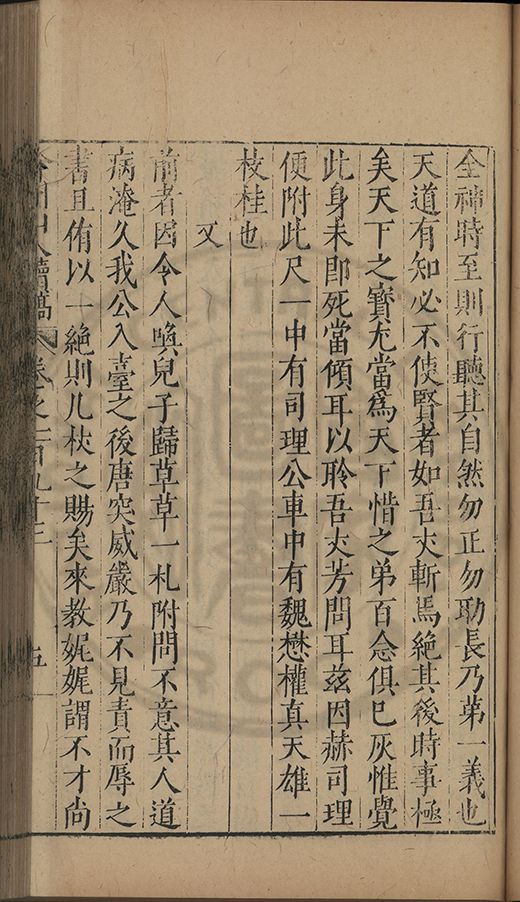 全神時至則行聽其自然勿正勿助長乃第一義也
天道有知必不使賢者如吾丈斬焉絕其後時事極
矣天下之寶尤當爲天下惜之弟百念俱已灰惟覺
此身未即死當傾耳以聆吾丈芳問耳茲因赫司理
便附此尺一中有司理公車中有魏懋權真天雄一
枝桂也
又
前者因令人喚兒子歸草草一札附問不意其人道
病淹久我公入臺之後唐突威嚴乃不見責而辱之
書且侑以一絕則几杖之賜矣來教娓娓謂不才尚
弇州山人續稿 卷之一百九十三 五